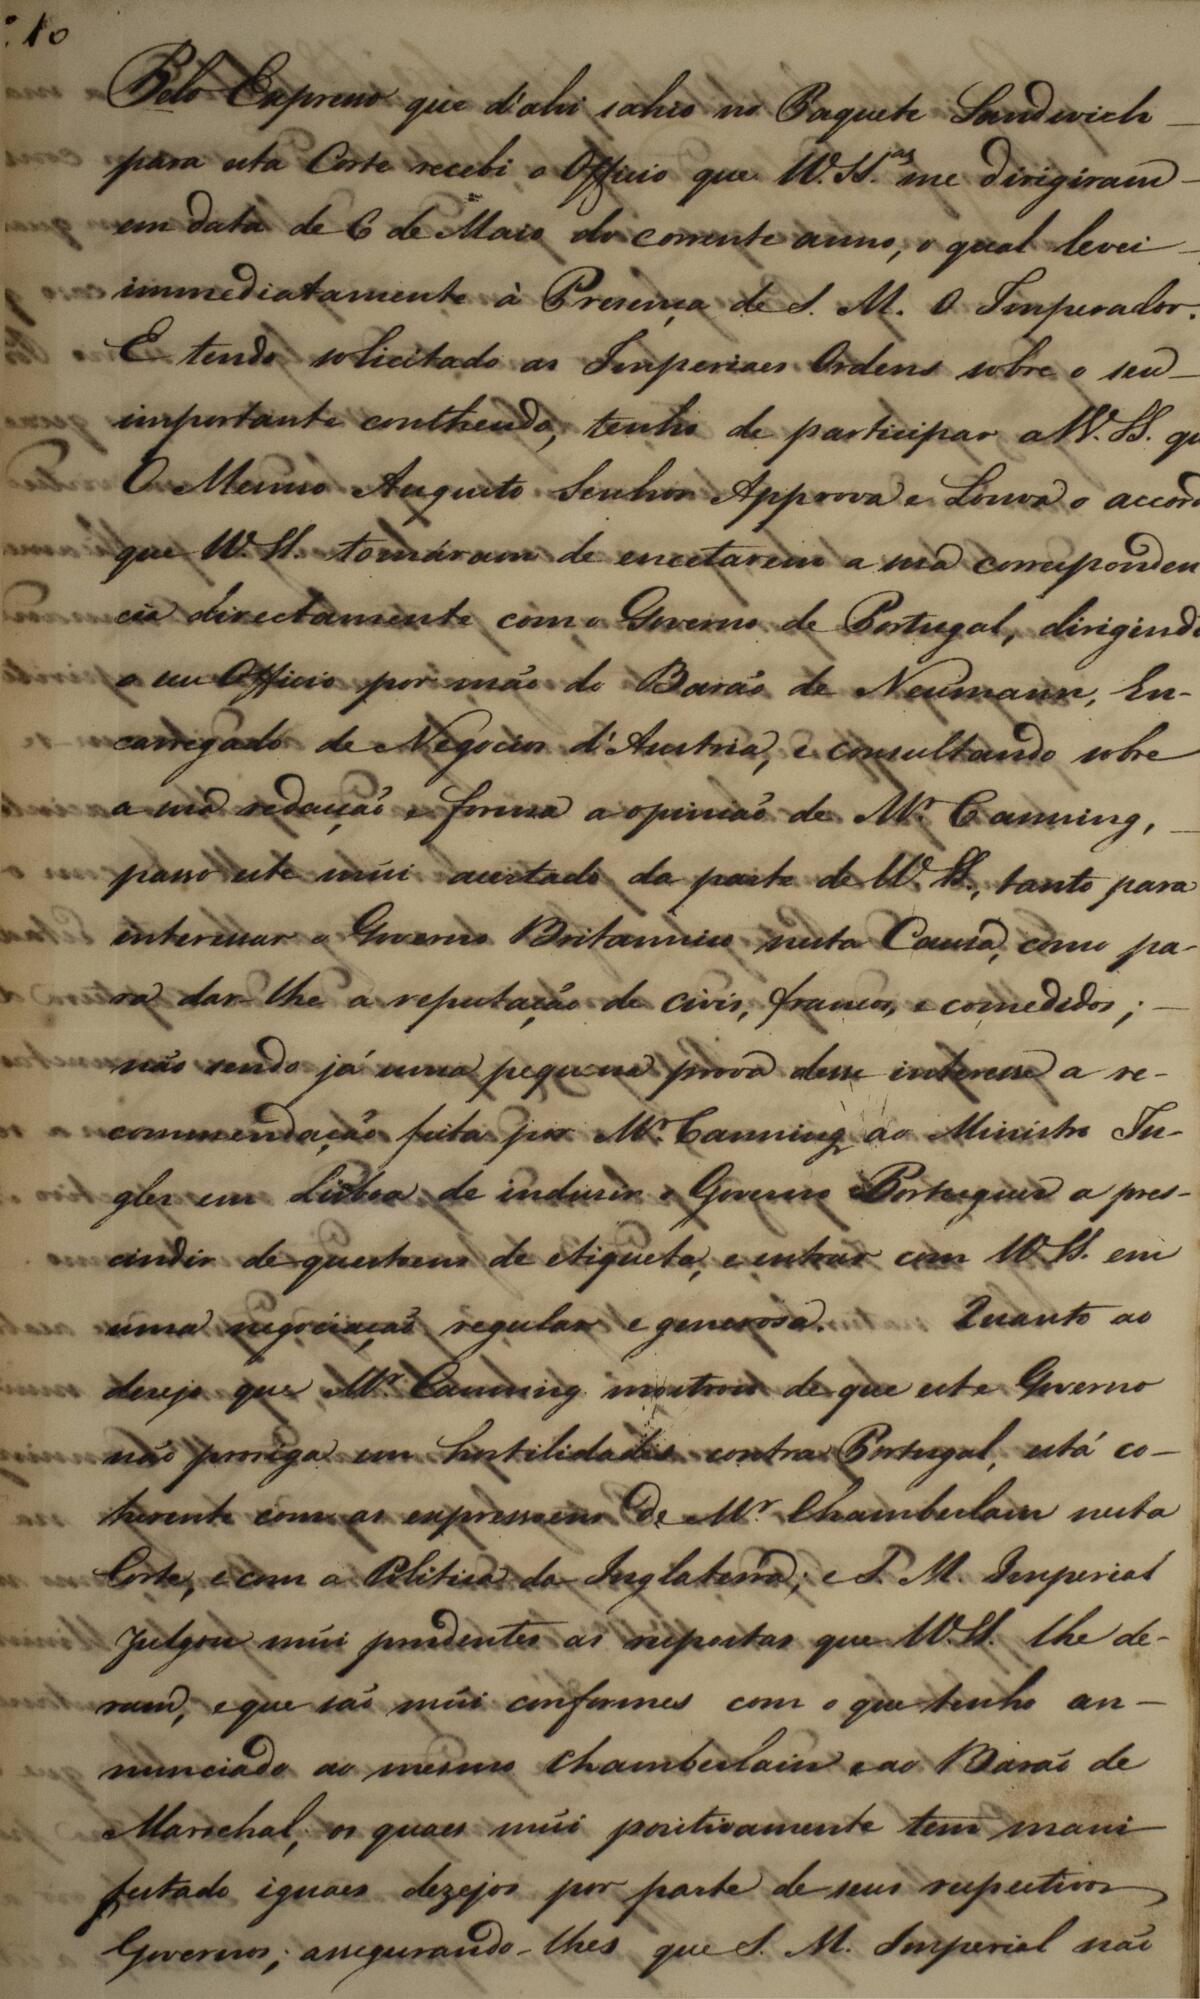 : 10
Pelo Expresso que d'ahi sahio no Paquete Sandwich
para esta Corte recebi o Officio que VV. SS.as me dirigiram
em data de 6 de Maio do corrente anno, o qual levei
immediatamente à Presença de S. M. O Imperador.
E tendo solicitado as Imperiaes Ordens sobre o seu
importante contheudo, tenho de participar a VV. SS. qu
O Mesmo Augusto Senhor Approva e Louva o accord
que VV. SS. tomáram de encetarem a sua corresponden
cia directamente com o Governo de Portugal, dirigindo
o seu Officio por mão do Barão de Neumann, En-
carregado de Negocios d'Austria, e consultando sobre
a sua redacção e forma a opinião de Mr. Canning,
passo este mûi acertado da parte de VV. SS., tanto para
interessar o Governo Britannico nesta Causa, como pa-
ra dar-lhe a reputação de civis, francos, e comedidos;
não sendo já uma pequena prova desse interesse a re-
commendação feita por Mr. Canning ao Ministro In-
glez em Lisboa de induzir o Governo Portuguez a pres-
cindir de questoens de etiqueta, e entrar com VV. SS. em
uma negociação regular e generosa. Quanto ao
desejo que Mr. Canning mostrou de que este Governo
não prosiga em hostilidades contra Portugal, está co-
herente com as expressoens de Mr. Chamberlain nesta
Corte, e com a Politica da Inglaterra; e S. M. Imperial
Julgou mûi prudentes as respostas que VV. SS. lhe de-
ram, e que são mûi conformes com o que tenho an-
nunciado ao mesmo Chamberlain e ao Barão de
Mareschal, os quaes mûi positivamente tem mani
festado iguaes dezejos por parte de seus respectivos
Governos; assegurando-lhes que S. M. Imperial não